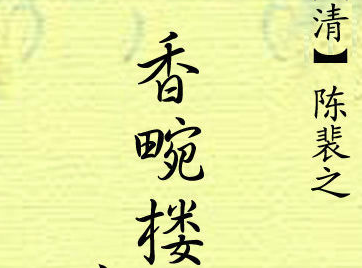 清】陈裴之
香畹楼